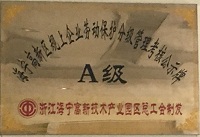 海宁高新区规上企业劳动保护分级管理考核公示牌
A级
浙江海宁高新技术产业园区总工会制发